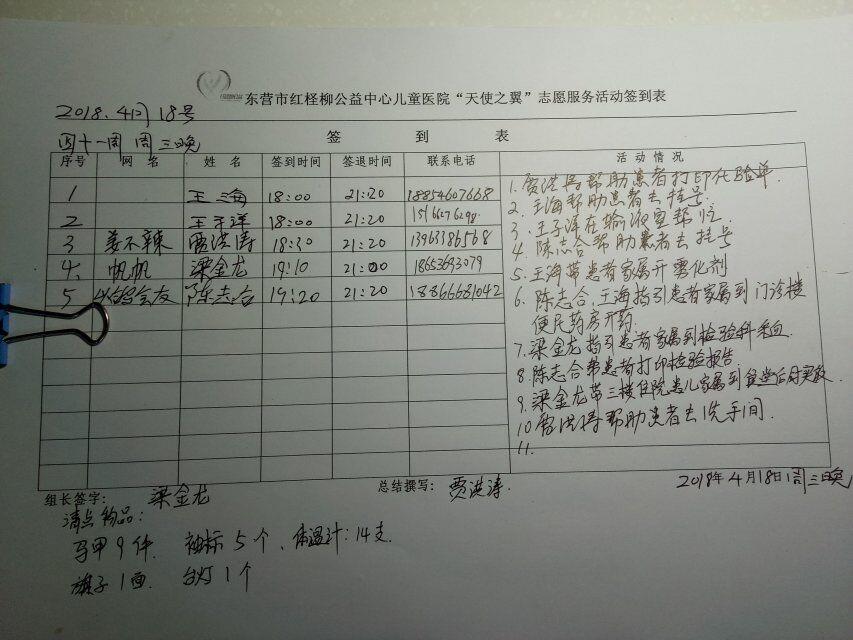 东营市红柽柳公益中心儿童医院“天使之翼”志愿服务活动签到表
2018.4月18号
四十一周 周三晚
签到表
序号 网名 姓名 签到时间 签退时间 联系电话 活动情况
1 王海 18:00 21:20 18854607668
2 王子洋 18:00 21:20
3 姜不辣 贾洪涛 18:30 21:20 13963386568
4. 帆帆 梁金龙 19:10 21:20 18653683079
5 陈志合 19:20 21:20 18866681042
1. 贾洪涛帮助患者打印化验单.
2. 王海帮助患者去挂号.
3. 王子洋在输液室帮忙.
4. 陈志合帮助患者去挂号
5. 王海带患者家属开雾化剂
6. 陈志合.王海指引患者家属到门诊楼
便民药房开药.
7. 梁金龙指引患者家属到检验科采血.
8. 陈志合带患者打印检验报告.
9. 梁金龙带三楼住院患儿家属到食堂
10 贾洪涛帮助患者去洗手间.
11.
组长签字: 梁金龙 总结撰写: 贾洪涛.
2018年4月18日周三晚
清点物品:
马甲9件. 袖标5个、体温计:14支.
旗子1面. 台灯1个